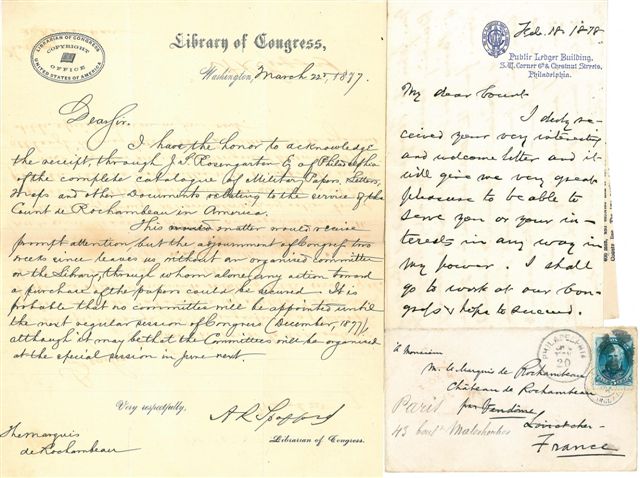 LIBRARIAN OF CONGRESS
COPYRIGHT
OFFICE
UNITED STATES OF AMERICA
Library of Congress,
Washington, March 22, 1877.
Dear Sir.
I have the honor to acknowledge
the receipt, through J. G. Rosengarten Esq of Philadelphia
of the complete catalogue of Military Papers, Letters,
Maps and other Documents relating to the service of the
Count de Rochambeau in America.
This matter would receive
prompt attention but the adjournment of Congress two
weeks since leaves us without an organised committee
on the Library, through whom alone any action toward
a purchase of the papers could be secured. It is
probable that no committee will be appointed until
the next regular session of Congress (December, 1877),
although it may be that the Committees will be organised
at the special session in June next.
Very respectfully,
A R Spofford
Librarian of Congress.
The marquis
de Rochambeau
Feb. 18. 1878
Public Ledger Building,
S.W. Corner 6th & Chestnut Streets,
Philadelphia.
My dear Count
I duly re-
ceived your very interesting
and welcome letter and it
will give me very great
pleasure to be able to
serve you or your in-
terests in any way in
my power. I shall
go to work at our Con-
gress & hope to succeed.
PHILADELPHIA
20
à Monsieur
M. le Marquis de Rochambeau
Château de Rochambeau
par Vendôme
Loir et cher
France
Paris
43 boult Malesherbes